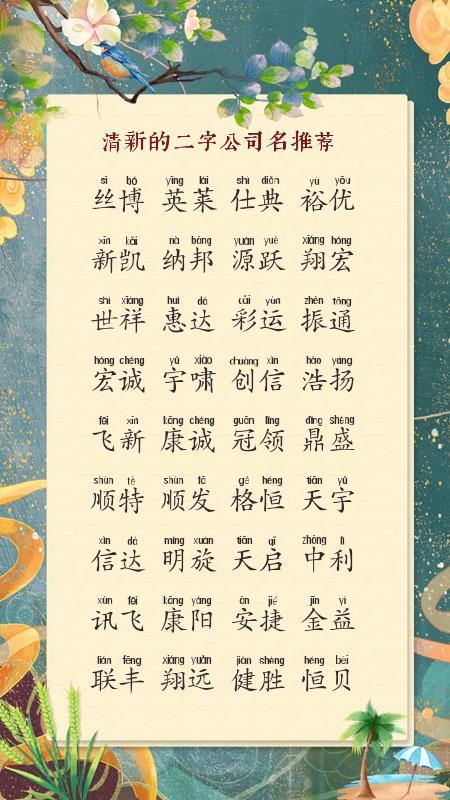 清新的二字公司名推荐
sī bó yīng lái shì diǎn yù yōu
丝博 英莱 仕典 裕优
xīn kǎi nà bāng yuán yuè xiáng hóng
新凯 纳邦 源跃 翔宏
shì xiáng huì dá cǎi yùn zhèn tōng
世祥 惠达 彩运 振通
hóng chéng yǔ xiào chuàng xìn hào yáng
宏诚 宇啸 创信 浩扬
fēi xīn kāng chéng guān lǐng dǐng shèng
飞新 康诚 冠领 鼎盛
shùn tè shùn fā gé héng tiān yǔ
顺特 顺发 格恒 天宇
xìn dá míng xuán tiān qǐ zhōng lì
信达 明旋 天启 中利
xùn fēi kāng yáng ān jié jīn yì
讯飞 康阳 安捷 金益
lián fēng xiáng yuǎn jiàn shèng héng bèi
联丰 翔远 健胜 恒贝